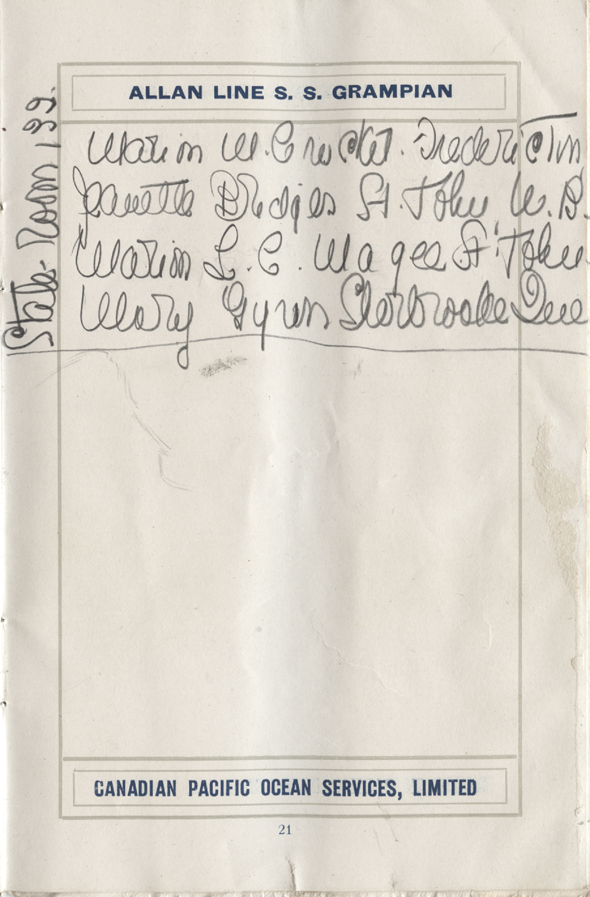 ALLAN LINE S. S. GRAMPIAN
State-Room 132.
Marion W. Crocket. Fredericton
Jeanette Bridges St. John N. B.
Marion L. C. Magee St. John
Mary Gyron Sherbrooke Que
CANADIAN PACIFIC OCEAN SERVICES, LIMITED
21